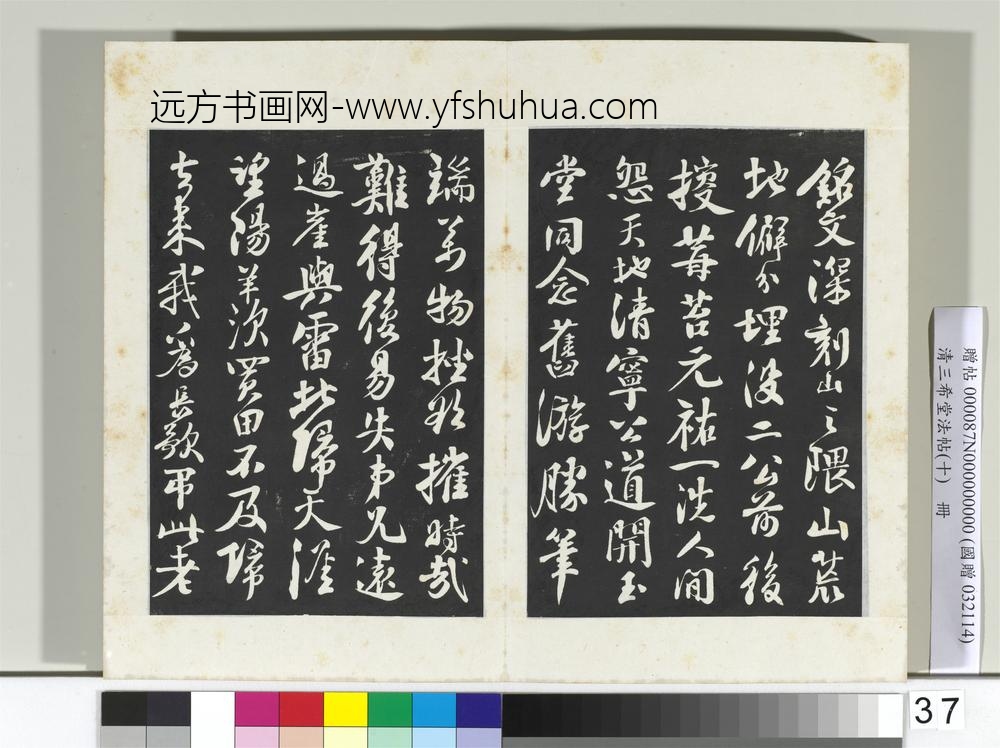 远方书画网-www.yfshuhua.com
銘文深刻山之隈山荒
地僻分埋没二公前後
莓苔元祐一洗人間
怨天地清寧公道開玉
堂同念舊游勝筆
端萬物挫欲摧時哉
難得後易失弟兄遠
過崖與雷北歸天涯
望陽羨買田不及歸
去来我為長歌弔此老
贈帖 000087N000000000 (國贈 032114)
清三希堂法帖(十) 冊
37